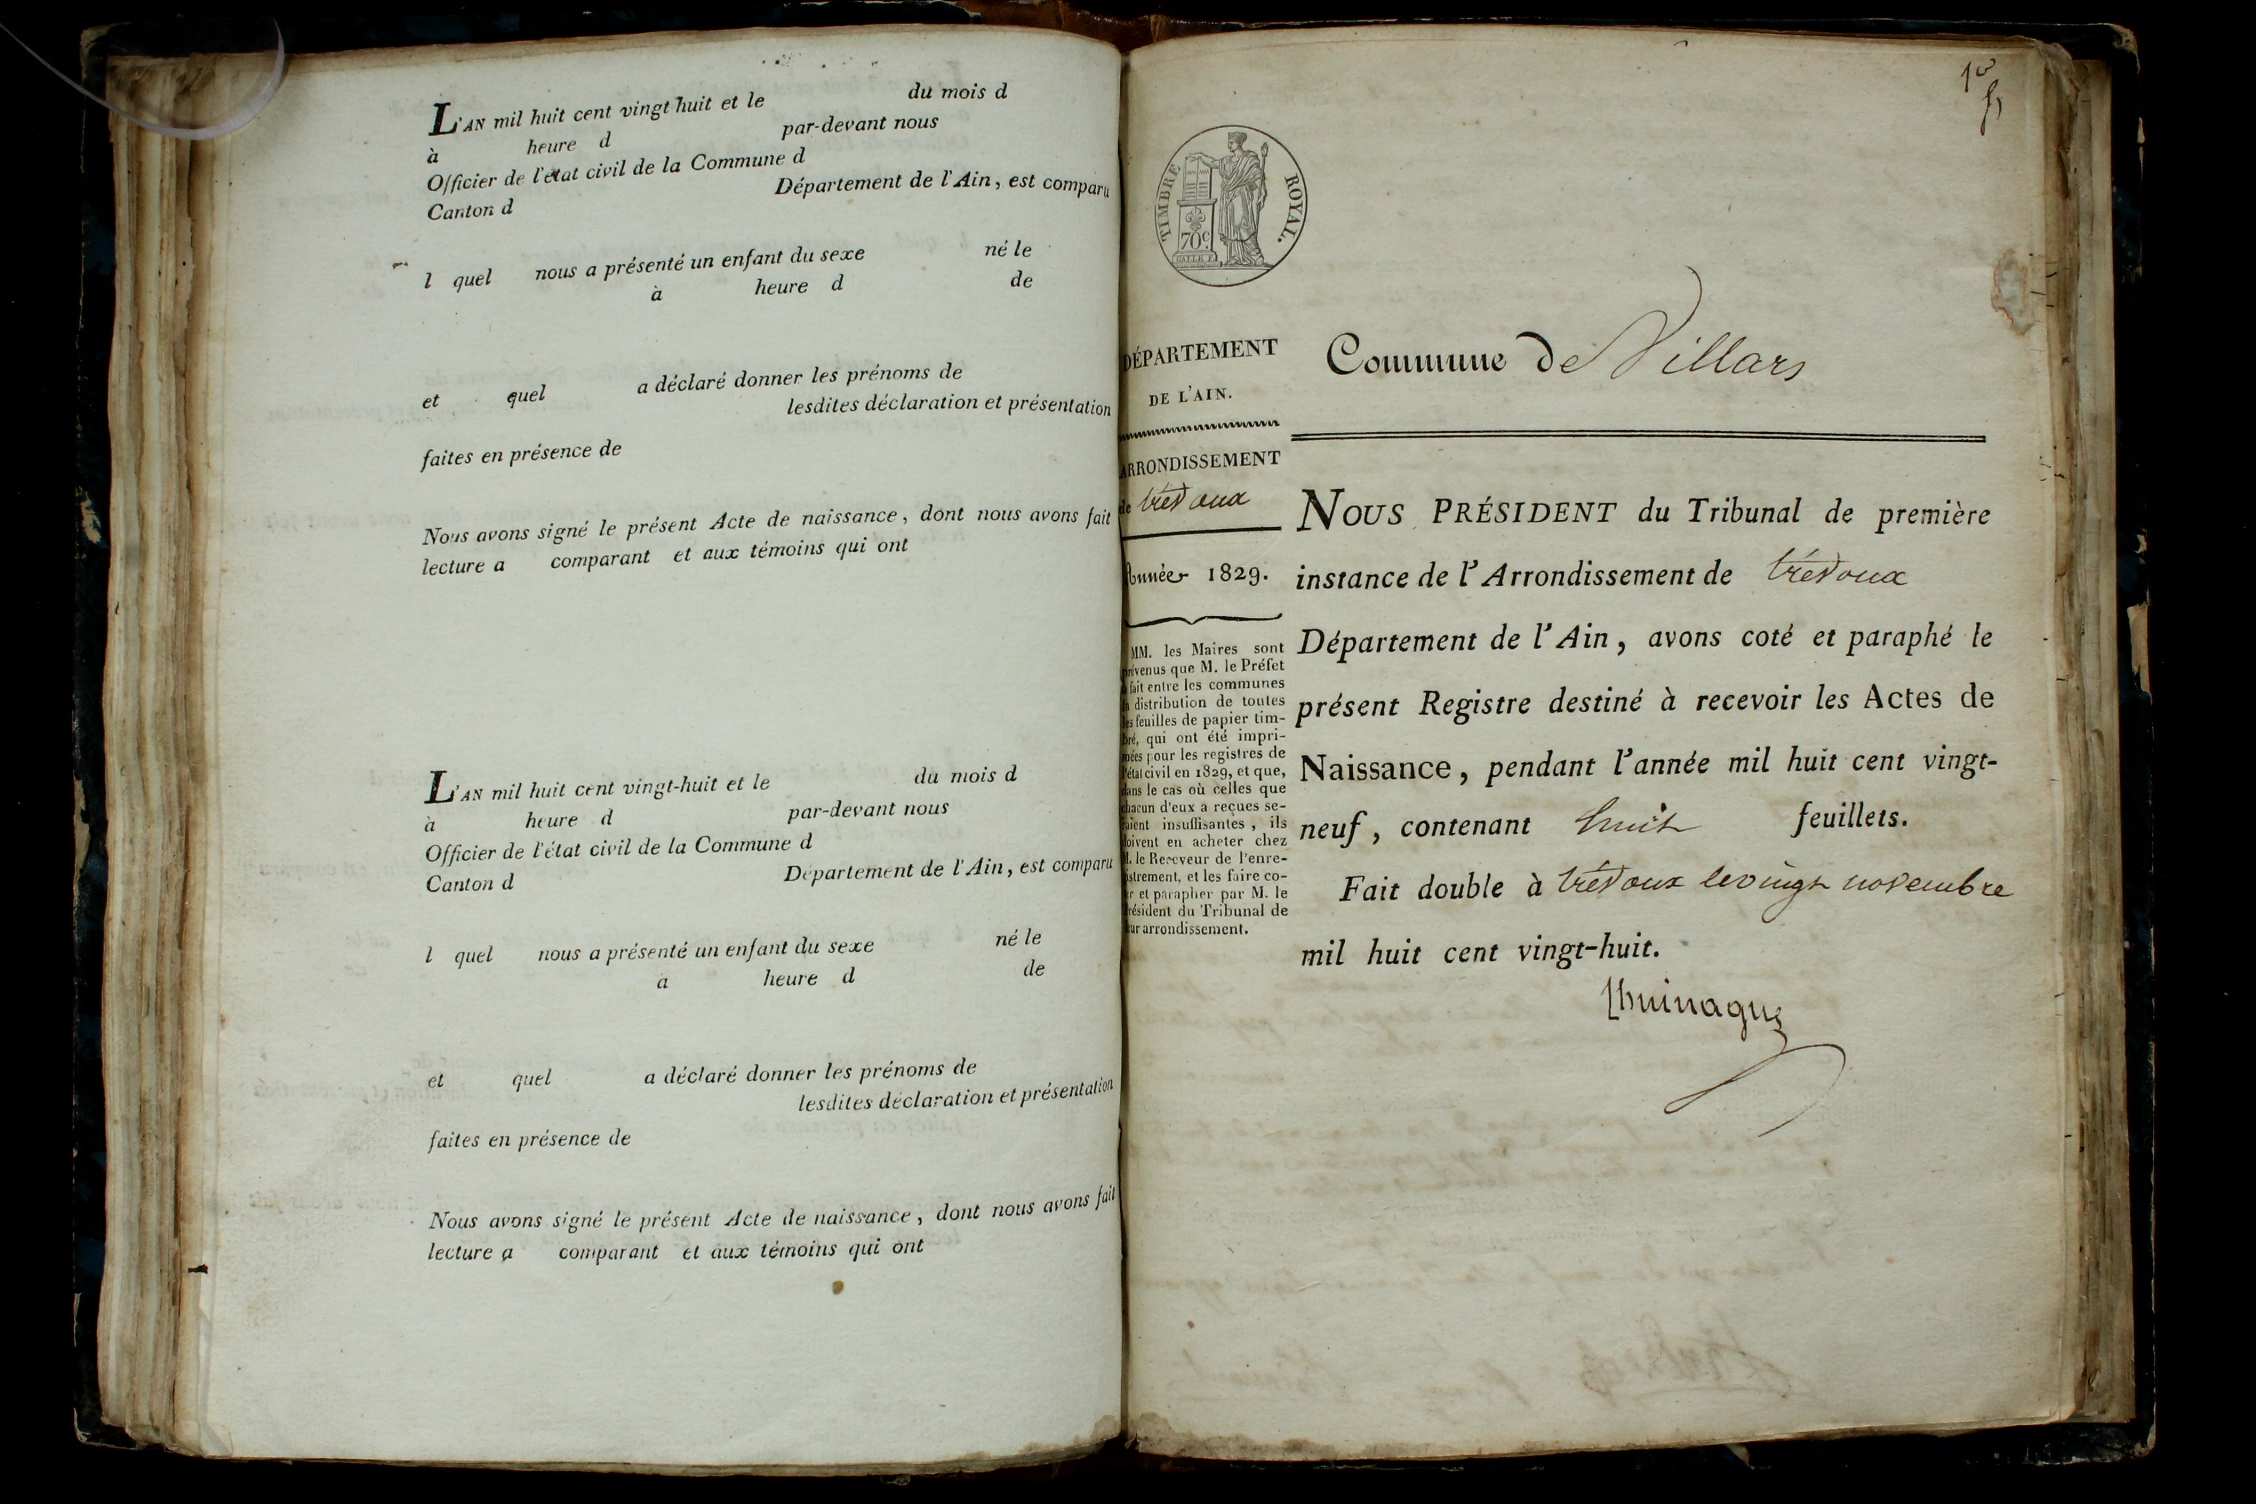 L'AN mil huit cent vingt huit et le du mois d
à heure d par-devant nous
Officier de l'état civil de la Commune d
Canton d Département de l'Ain, est comparu
l quel nous a présenté un enfant du sexe né le
à heure d de
et quel a déclaré donner les prénoms de
lesdites déclaration et présentation
faites en présence de
Nous avons signé le présent Acte de naissance, dont nous avons fait
lecture a comparant et aux témoins qui ont
L'AN mil huit cent vingt-huit et le du mois d
à heure d par-devant nous
Officier de l'état civil de la Commune d
Canton d Département de l'Ain, est comparu
l quel nous a présenté un enfant du sexe né le
a heure d de
et quel a déclaré donner les prénoms de
lesdites déclaration et présentation
faites en présence de
Nous avons signé le présent Acte de naissance, dont nous avons fait
lecture a comparant et aux témoins qui ont
TIMBRE ROYAL.
70c
DÉPARTEMENT
DE L'AIN.
ARRONDISSEMENT
de trévoux
Année 1829.
MM. les Maires sont
prévenus que M. le Préfet
a fait entre les communes
la distribution de toutes
les feuilles de papier tim-
bré, qui ont été impri-
mées pour les registres de
l'état civil en 1829, et que,
dans le cas où celles que
chacun d'eux a reçues se-
raient insuffisantes, ils
doivent en acheter chez
M. le Receveur de l'enre-
gistrement, et les faire co-
ter et parapher par M. le
Président du Tribunal de
leur arrondissement.
Commune de Villars
NOUS PRÉSIDENT du Tribunal de première
instance de l'Arrondissement de trévoux
Département de l'Ain, avons coté et paraphé le
présent Registre destiné à recevoir les Actes de
Naissance, pendant l'année mil huit cent vingt-
neuf, contenant huit feuillets.
Fait double à trévoux le vingt novembre
mil huit cent vingt-huit.